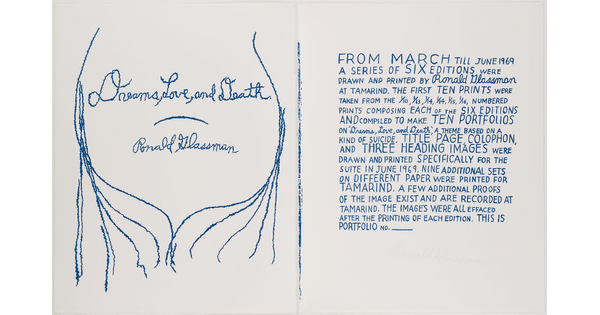 Dreams, Love, and Death.
Ronald Glassman
FROM MARCH TILL JUNE 1969
A SERIES OF SIX EDITIONS WERE
DRAWN AND PRINTED BY Ronald Glassman
AT TAMARIND. THE FIRST TEN PRINTS WERE
TAKEN FROM THE 1/10, 1/3, 1/4, 1/4, 1/5, 1/6, NUMBERED
PRINTS COMPOSING EACH OF THE SIX EDITIONS
AND COMPILED TO MAKE TEN PORTFOLIOS
ON 'Dreams, Love, and Death,' A THEME BASED ON A
KIND OF SUICIDE. TITLE PAGE, COLOPHON,
AND THREE HEADING IMAGES WERE
DRAWN AND PRINTED SPECIFICALLY FOR THE
SUITE IN JUNE 1969. NINE ADDITIONAL SETS
ON DIFFERENT PAPER WERE PRINTED FOR
TAMARIND. A FEW ADDITIONAL PROOFS
OF THE IMAGE EXIST AND ARE RECORDED AT
TAMARIND. THE IMAGE'S WERE ALL EFFACED
AFTER THE PRINTING OF EACH EDITION. THIS IS
PORTFOLIO NO.